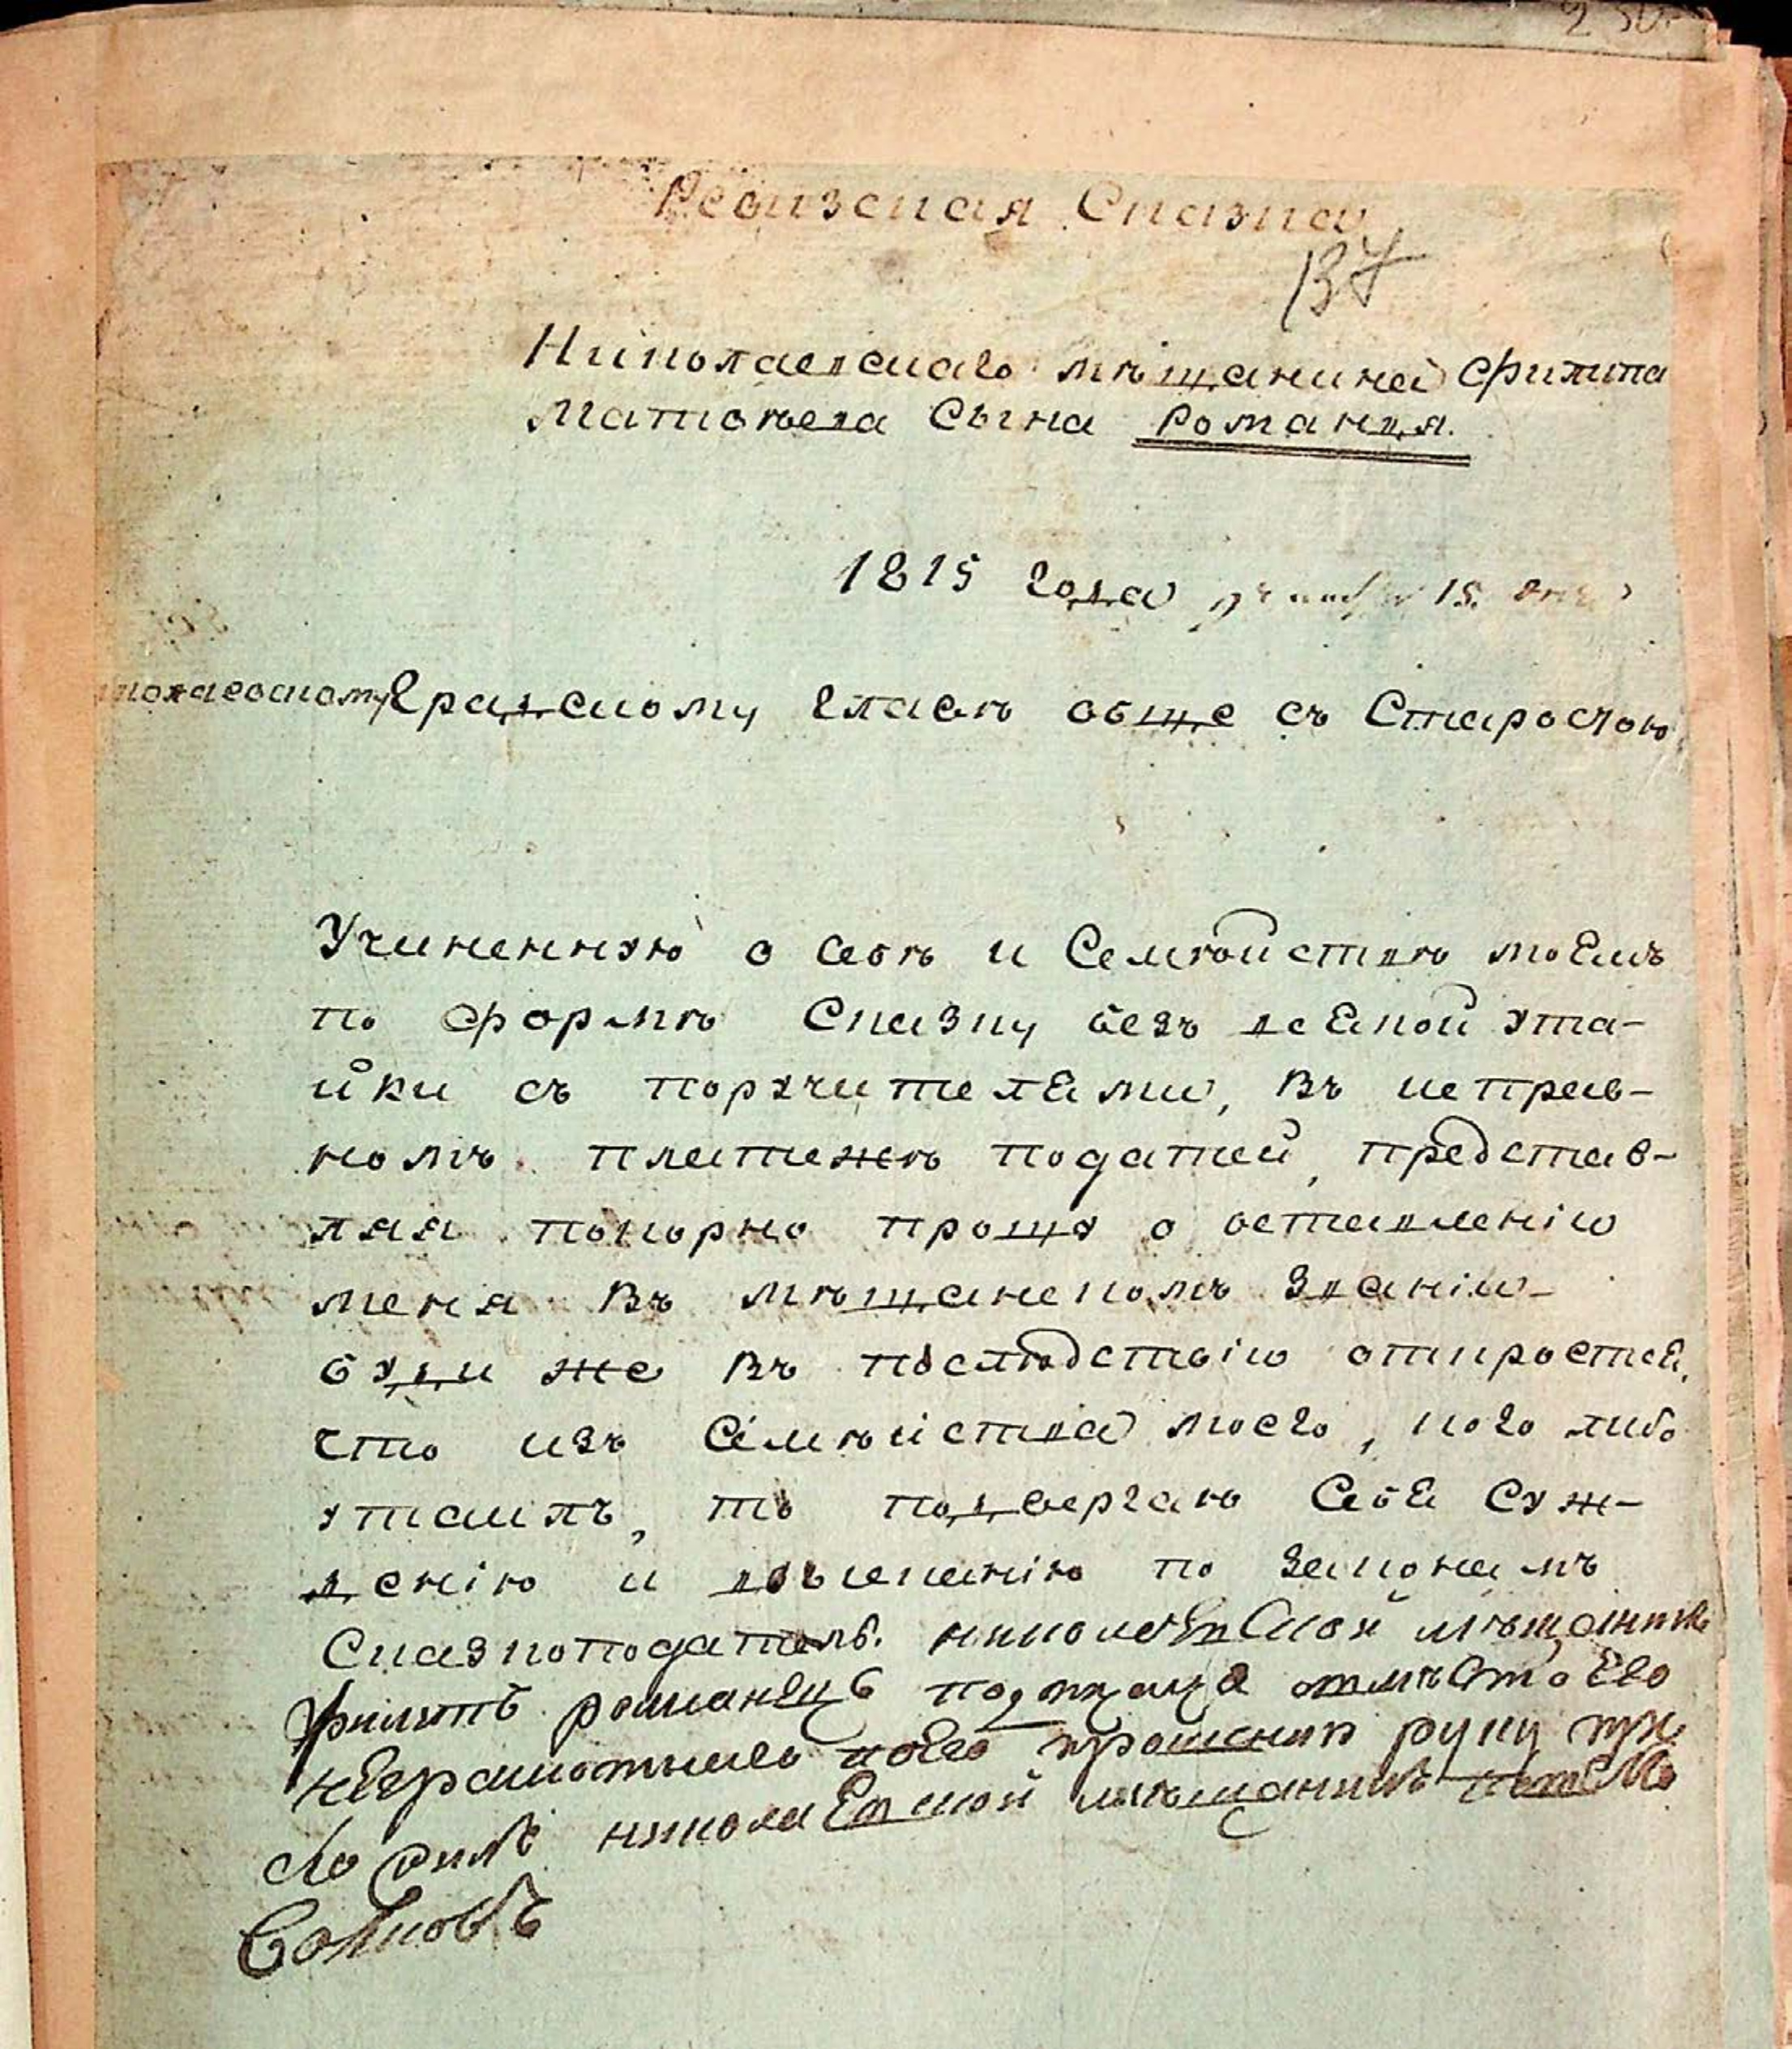 Ревизская Сказка
137
Николаевскаго мѣщанина Филипа
Матвѣева Сына Романця.
1815 года 15. дня
Градскому главѣ обще съ Старостою
Учиненную о себѣ и Семѣйствѣ моемъ
по формѣ Сказку безъ всякой ута-
йки съ поручителями, въ исправ-
номъ платежѣ податей, представ-
ляя покорно прошу о оставленіи
меня въ мѣщанскомъ званіи
буди же въ послѣдствіи откростся,
что изъ Семѣйства моего, кого либо
утаилъ, то подвергаю Себя Суж-
денію и взысканію по законамъ
Сказкоподатель николаевской мѣщанинъ
Филипъ романецъ подписуюся вмѣсто Его
неграмотнаго по Его прошению руку при
ложилъ николаевской мѣщанинъ